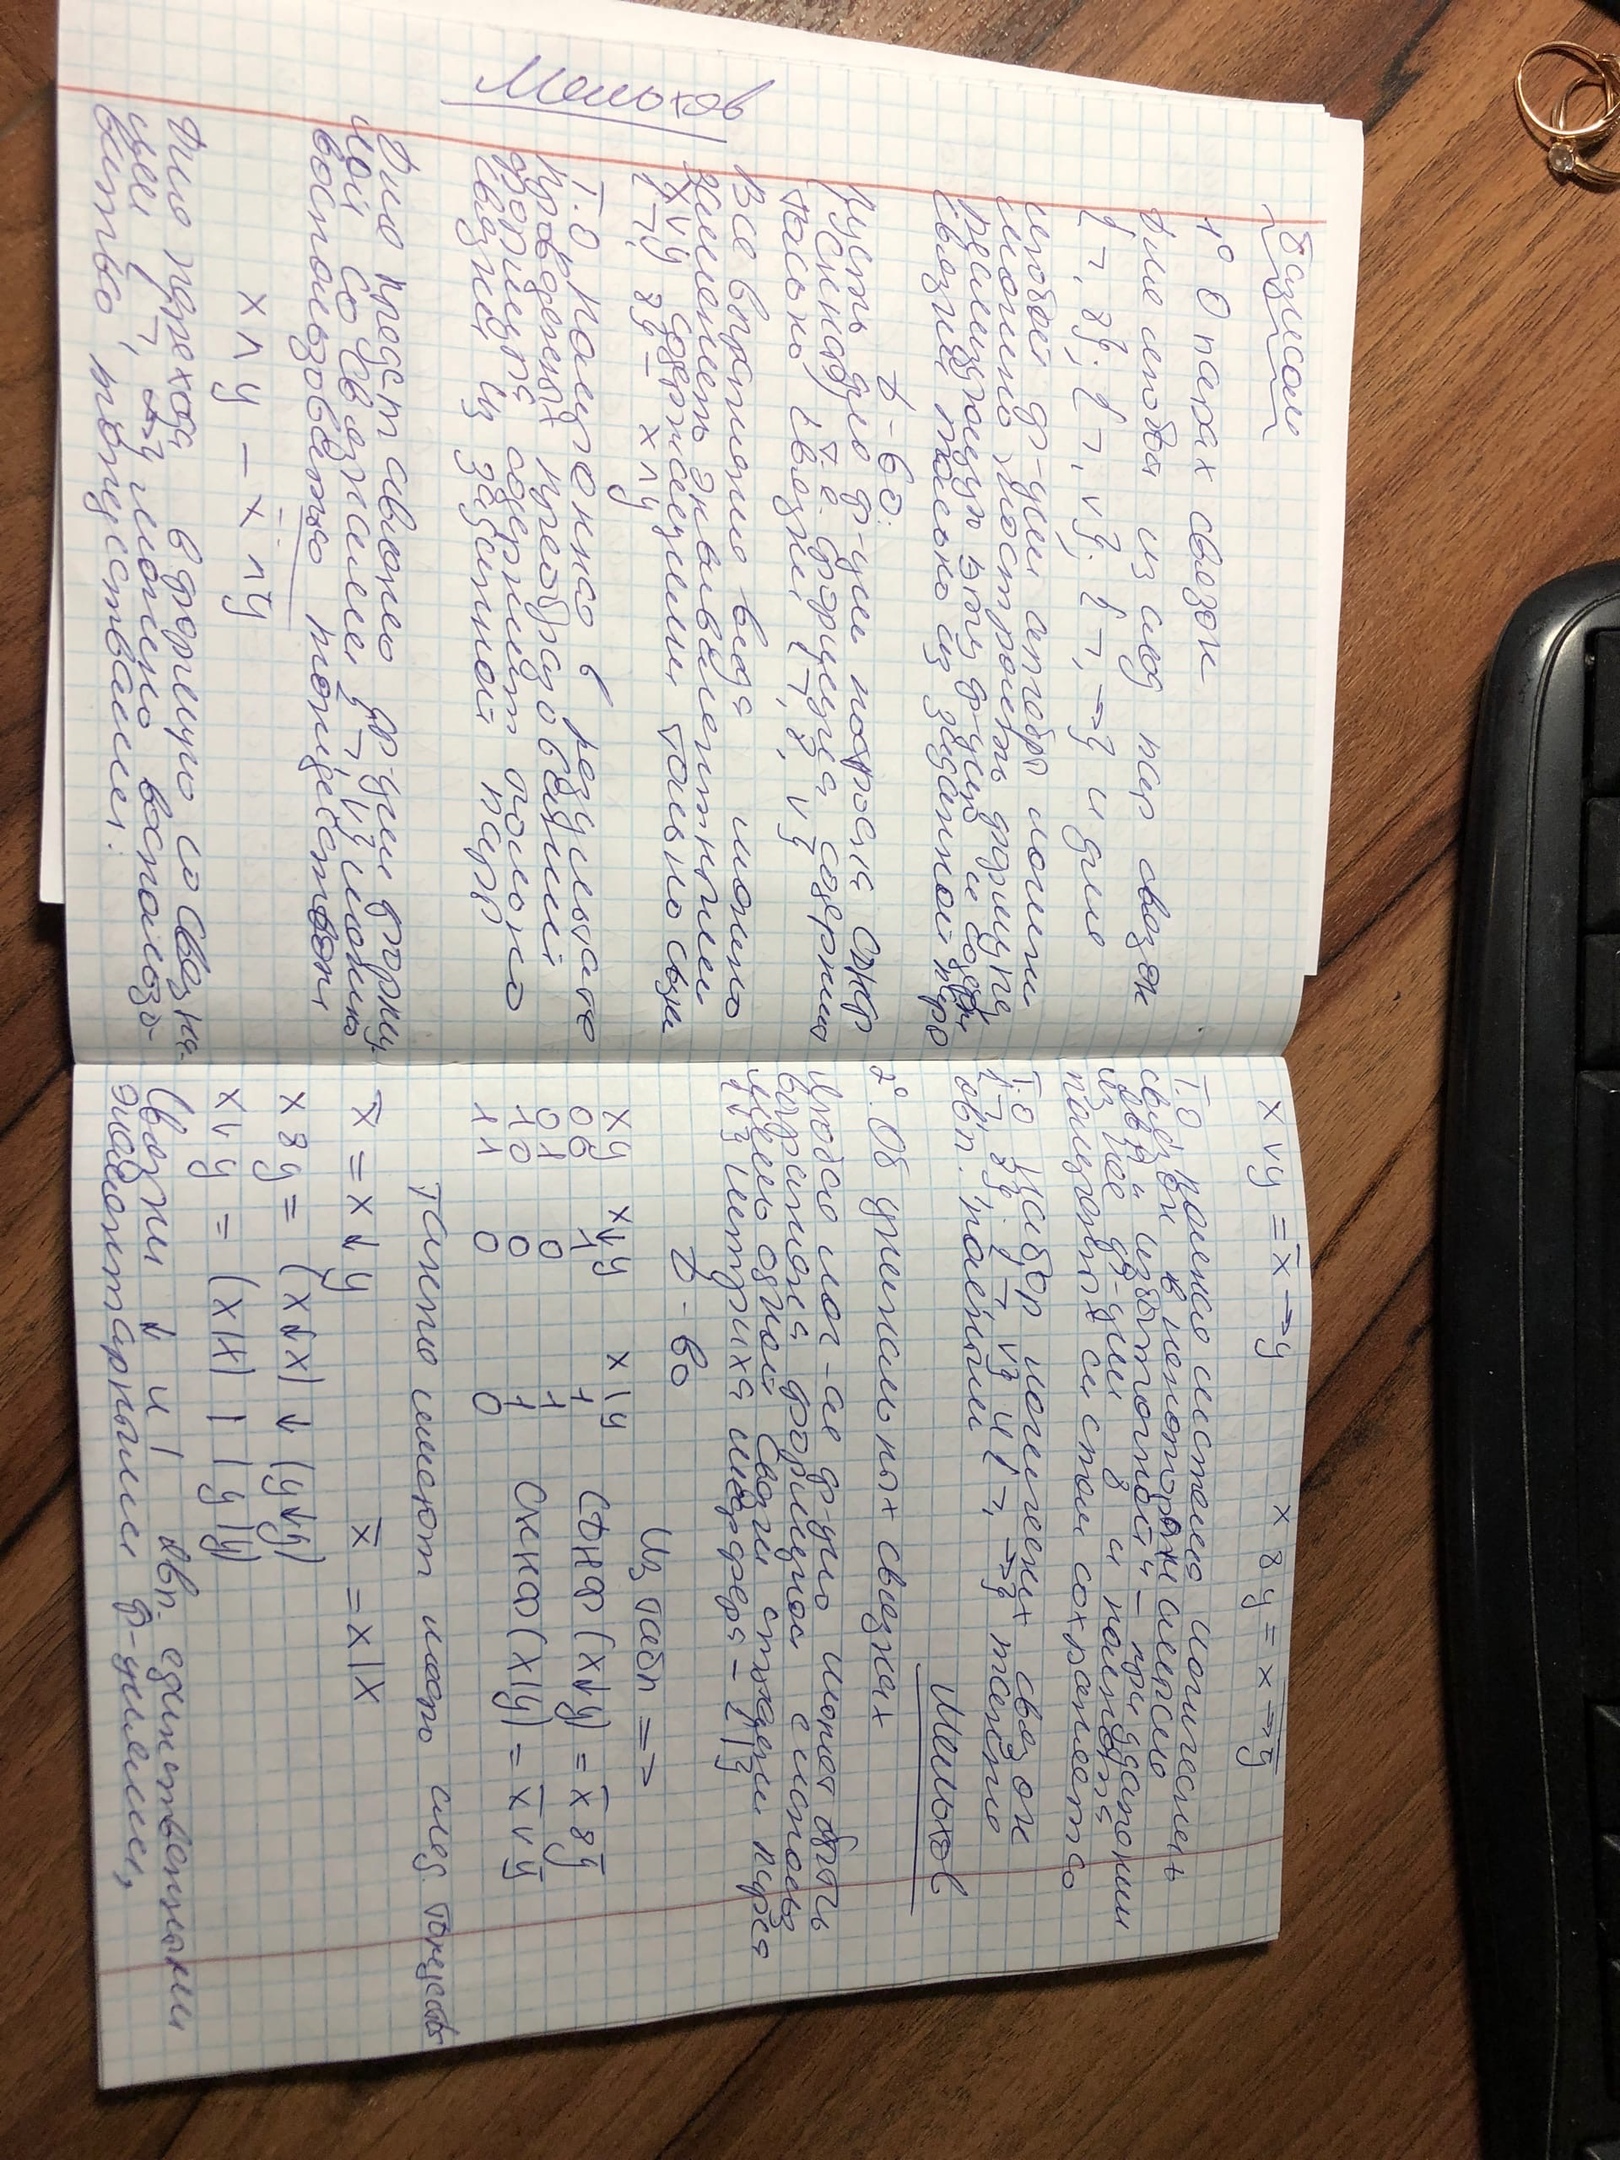 базисом
1° О парах связок
Для любой из след пар связок
{¬, &}; {¬, ∨}; {¬, →} и для
любой ф-ции алгебры логики
можно построить формулу,
реализующую эту ф-цию и содерж
связки только из заданной пары
Д-во:
Пусть для ф-ции построена СДНФ
(СКНФ), т.е. формула содержит
только связки {¬, &, ∨}
Все выражения вида можно
заменить эквивалентными
x∨y содержащими только связки
{¬, &} – x∧y
Т.О, полученная в результате
проведенных преобразований
формула содержит только
связки из заданной пары
Для представления ф-ции форму-
лой со связками {¬, ∨} можно
воспользоваться тождеством
x∧y – x̄∧ȳ
Для перехода в форму со связка-
ми {¬, →} можно воспользо-
ваться тождествами:
Мельхов
x∨y = x̄→y x & y = x→ȳ
Т.О, полная система логических
связок в некотором смысле
явл „избыточной“ – при удалении
из нее ф-ции & и полнота
полученных систем сохраняется
Т.О набор логических связок
{¬, &}, {¬, ∨} и {¬, →} также
явл. полными
Мельхов
2°. Об уникальных связках
Любая лог-ая ф-ция может быть
выражена формулой с использ
лишь одной связки стрелки пирса
{↓} штриха шеффера – {|}
Д-во
Из табл =>
xy x↓y x|y
00 1 1 СДНФ(x↓y) = x̄&ȳ
01 0 1
10 0 1 СКНФ(x|y) = x̄∨ȳ
11 0 0
Также имеют место след. тождества
x̄ = x↓y x̄ = x|x
x&y = (x↓x)↓(y↓y)
x∨y = (x|x) | |y|y)
Связки ↓ и | явл. единственными
элементарными ф-циями,